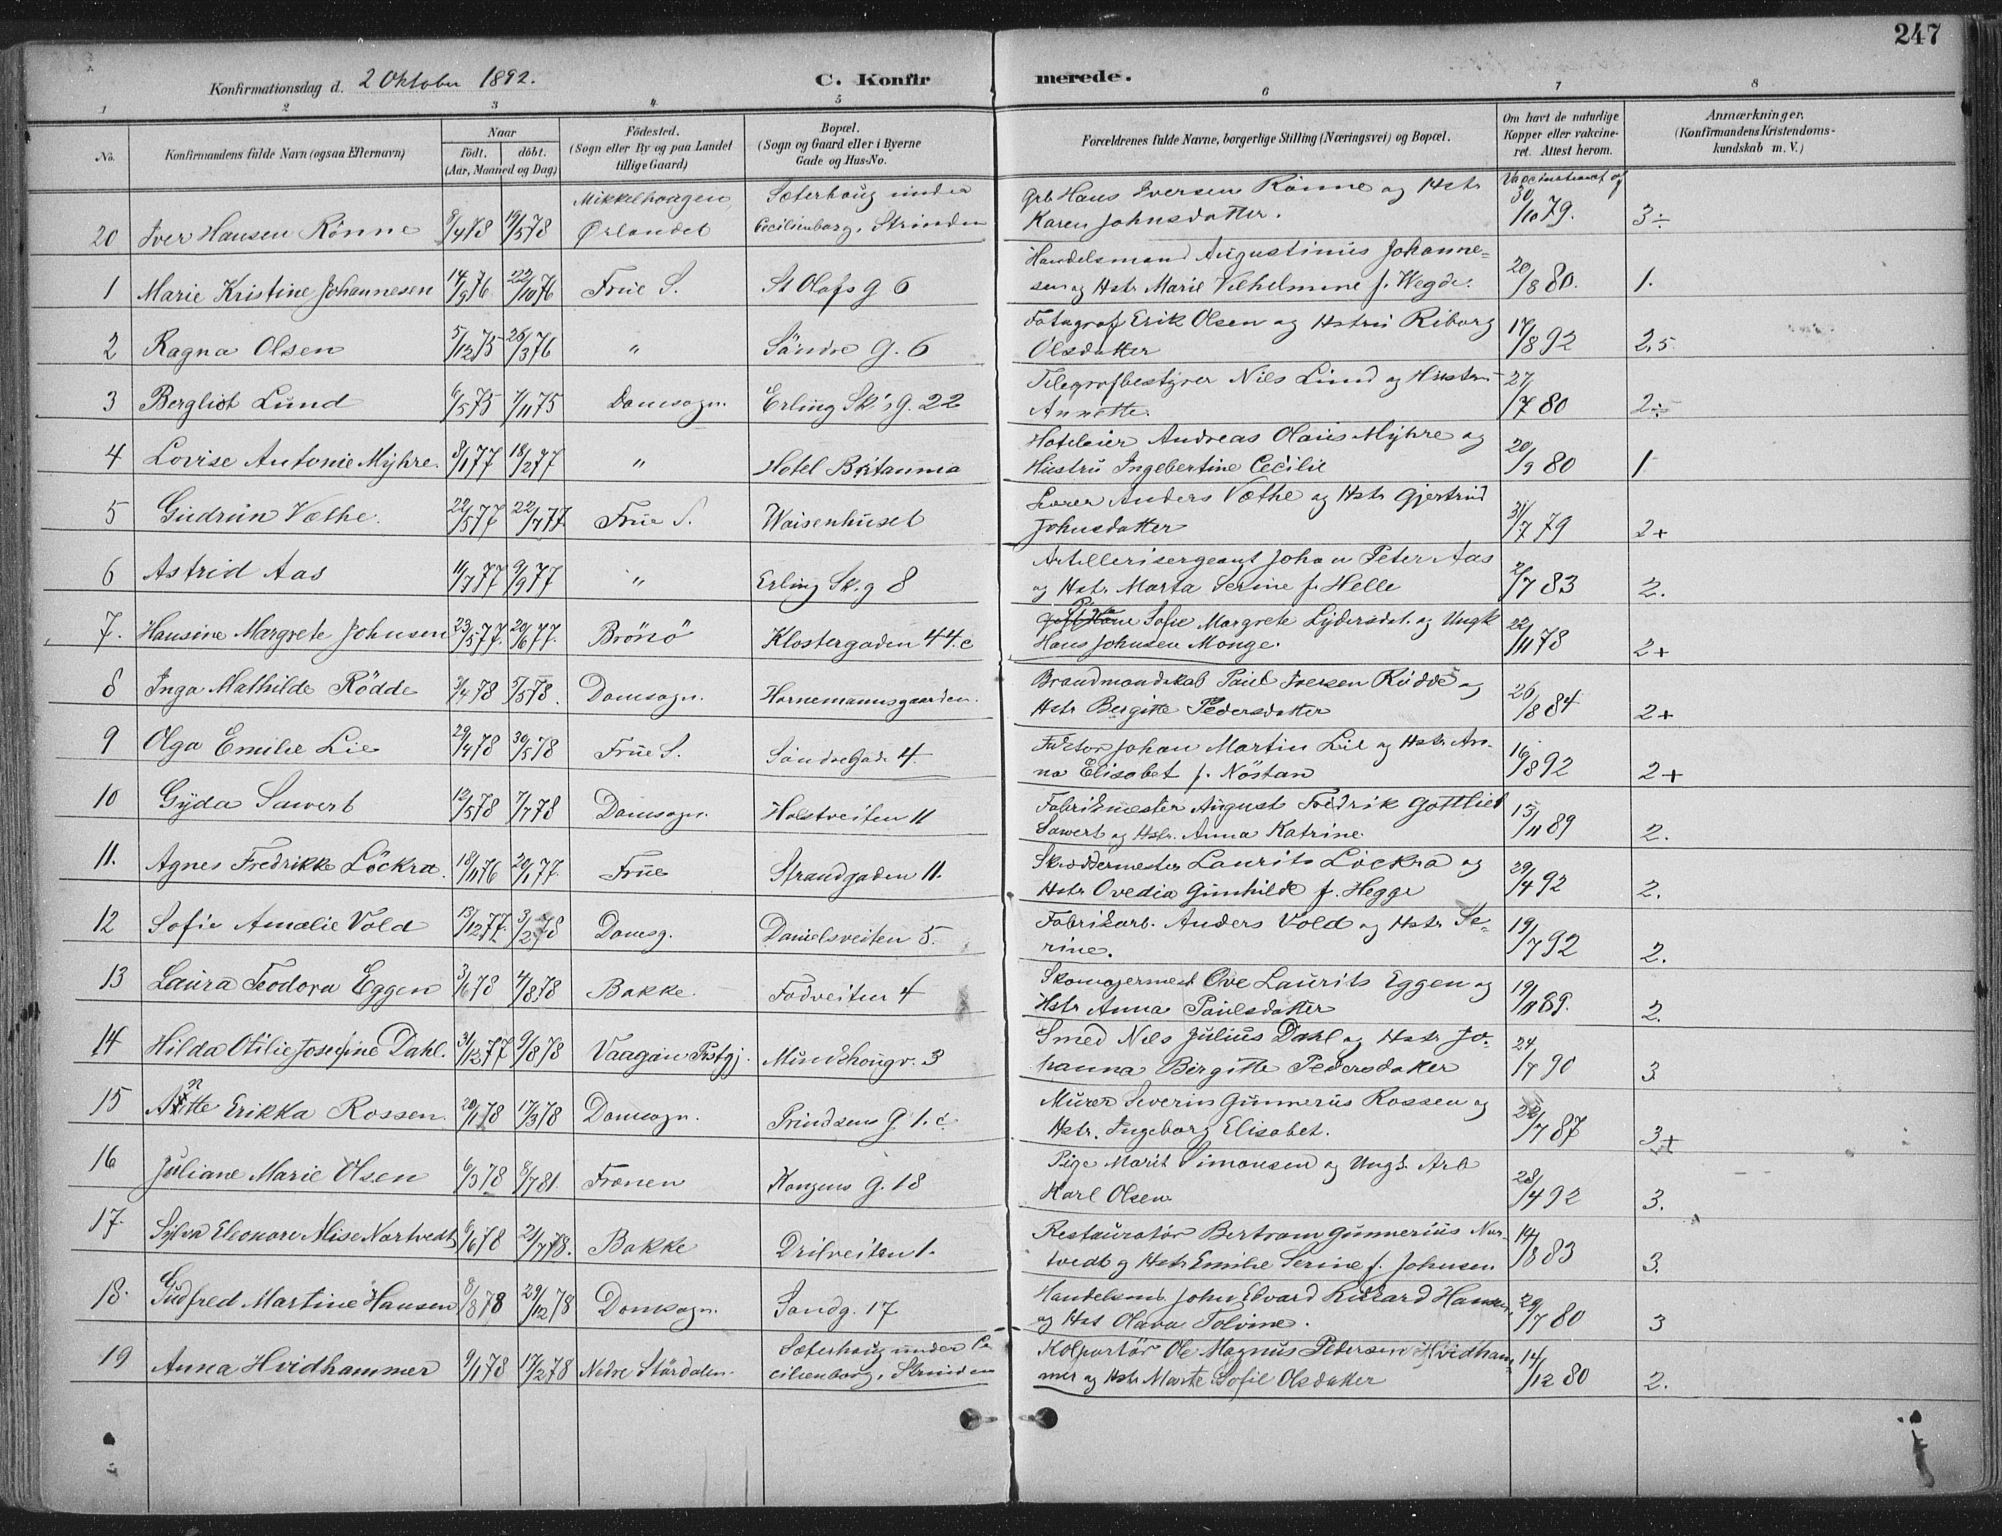 247
Konfirmationsdag d. 2 Oktober 1892. C. Konfirmerede.
1 2 3 4 5 6 7 8
No. Konfirmandens fulde Navn (ogsaa Efternavn) Naar Födt. döbt. (Aar, Maaned og Dag) Födested. (Sogn eller By og paa Landet tillige Gaard) Bopæl. (Sogn og Gaard eller i Byerne Gade og Hus-No. Forældrenes fulde Navne, borgerlige Stilling (Næringsvei) og Bopæl. Om havt de naturlige Kopper eller vakcineret. Attest herom. Anmærkninger. (Konfirmandens Kristendomskundskab m. V.)
Mikkelhaugen, Sæterhaug under Grb Hans Iversen Rönne og Hstr Vaccinationsat af
20 Iver Hansen Rönne 8/4 78 19/5 78 Ørlandet Cecilienborg, Strinden Karen Johnsdatter. 30/10 79. 3÷
Handelsmand Augustinus Johanne-
1 Marie Kristine Johannesen 14/9 76 22/10 76 Frue S. St Olafs g 6 sen og Hstr Marie Vilhelmine f. Wegde. 20/8 80. 1.
Fotograf Erik Olsen og Hstru Riborg
2 Ragna Olsen 5/12 75 26/3 76 " Söndre g. 6 Olsdatter 17/8 92 2,5
Telegrafbestyrer Nils Lund og Hustru
3 Bergliot Lund 6/5 75 7/11 75 Domsogn. Erling Sk's g. 22 Annette. 27/7 80 2÷
Hoteleier Andreas Olaus Myhre og
4 Lovise Antonie Myhre. 3/1 77 18/2 77 " Hotel Britannia Hustru Ingebertine Cecilie 20/9 80 1
Lærer Anders Væthe og Hstr Gjertrud
5 Gudrun Væthe. 22/5 77 22/7 77. Frue S. Waisenhuset Johnsdatter 31/7 79 2+
Artillerisergeant Johan Peter Aas
6 Astrid Aas 11/7 77 9/9 77 " Erling Sk. g 8 og Hstr. Marta Serine f. Helle 2/7 83 2.
Pige Sofie Margrete Lydersdat. og Ungk
7. Hansine Margrete Johnsen 23/5 77. 20/6 77. Brönö Klostergaden 44.c Hans Johnsen Monge. 22/11 78 2+
Brandmandskab Paul Iversen Rödde og
8 Inga Mathilde Rödde 3/4 78 5/5 78. Domsogn. Hornemannsgaarden. Hstr Bergitte Pedersdatter 26/8 84 2+
Johan Martin Lie og Hstr. An-
9 Olga Emilie Lie 29/4 78 30/5 78 Frue S. Söndregade 4. na Elisabet f. Nöstan 16/8 92 2+
Fabrikmester August Fredrik Gottlieb
10 Gyda Sawert 12/5 78 7/7 78 Domsogn. Holstveiten 11 Sawert og Hstr. Anna Katrine. 15/11 89 2.
Skræddermester Laurits Löckra og
11. Agnes Fredrikke Löckra. 18/11 76 20/1 77. Frue Strandgaden 11. Hstr Ovedia Gunhilde f. Hegge 29/4 92 2.
Fabrikarb. Anders Vold og Hstr. Se-
12 Sofie Amalie Vold 13/12 77. 3/2 78 Domsg. Danielsveiten 5. rine. 19/7 92 2.
Skomagermest Ove Laurits Eggen og
13 Laura Teodora Eggen 3/6 78 4/8 78 Bakke. Fodveiten 4 Hstr Anna Paulsdatter 19/11 89. 2.
Smed Nils Julius Dahl og Hstr Jo-
14 Hilda Otilie Josefine Dahl. 31/12 77 9/8 78 Vaagan Prstgj. Munkhougv. 3 hanna Birgitte Pedersdatter 24/7 90 3
Murer Severin Gunnerus Rossen og
15 Anette Erikka Rossen. 20/1 78 17/3 78 Domsogn. Prindsens g 1. c. Hstr. Ingeborg Elisabet. 22/7 87 3+
Pige Marit Simonsen og Ungk. Arb
16 Juliane Marie Olsen 6/3 78 8/7 81. Frænen Kongens g. 18 Karl Olsen. 28/4 92 3.
Restauratør Bertram Gunnerius Nor-
17. Sylva Eleonore Alise Nortvedt 6/6 78 21/7 78. Bakke Drilveiten 1. tvedt og Hstr Emilie Serine f. Johnsen 14/8 83 3.
Handelsmd. John Edvard Rikard Hansen
18. Gudfred Martine Hansen 8/8 78 29/12 78 Domsogn. Sandg. 17 og Hst Olava Tolvine. 29/7 80 3
Sæterhaug under Ce- Kolportör Ole Magnus Pedersen Hvidham-
19 Anna Hvidhammer 9/1 78 17/2 78 Nedre Stördalen. cilienborg, Strinden mer og Hstr. Marte Sofie Olsdatter 14/12 80 2.